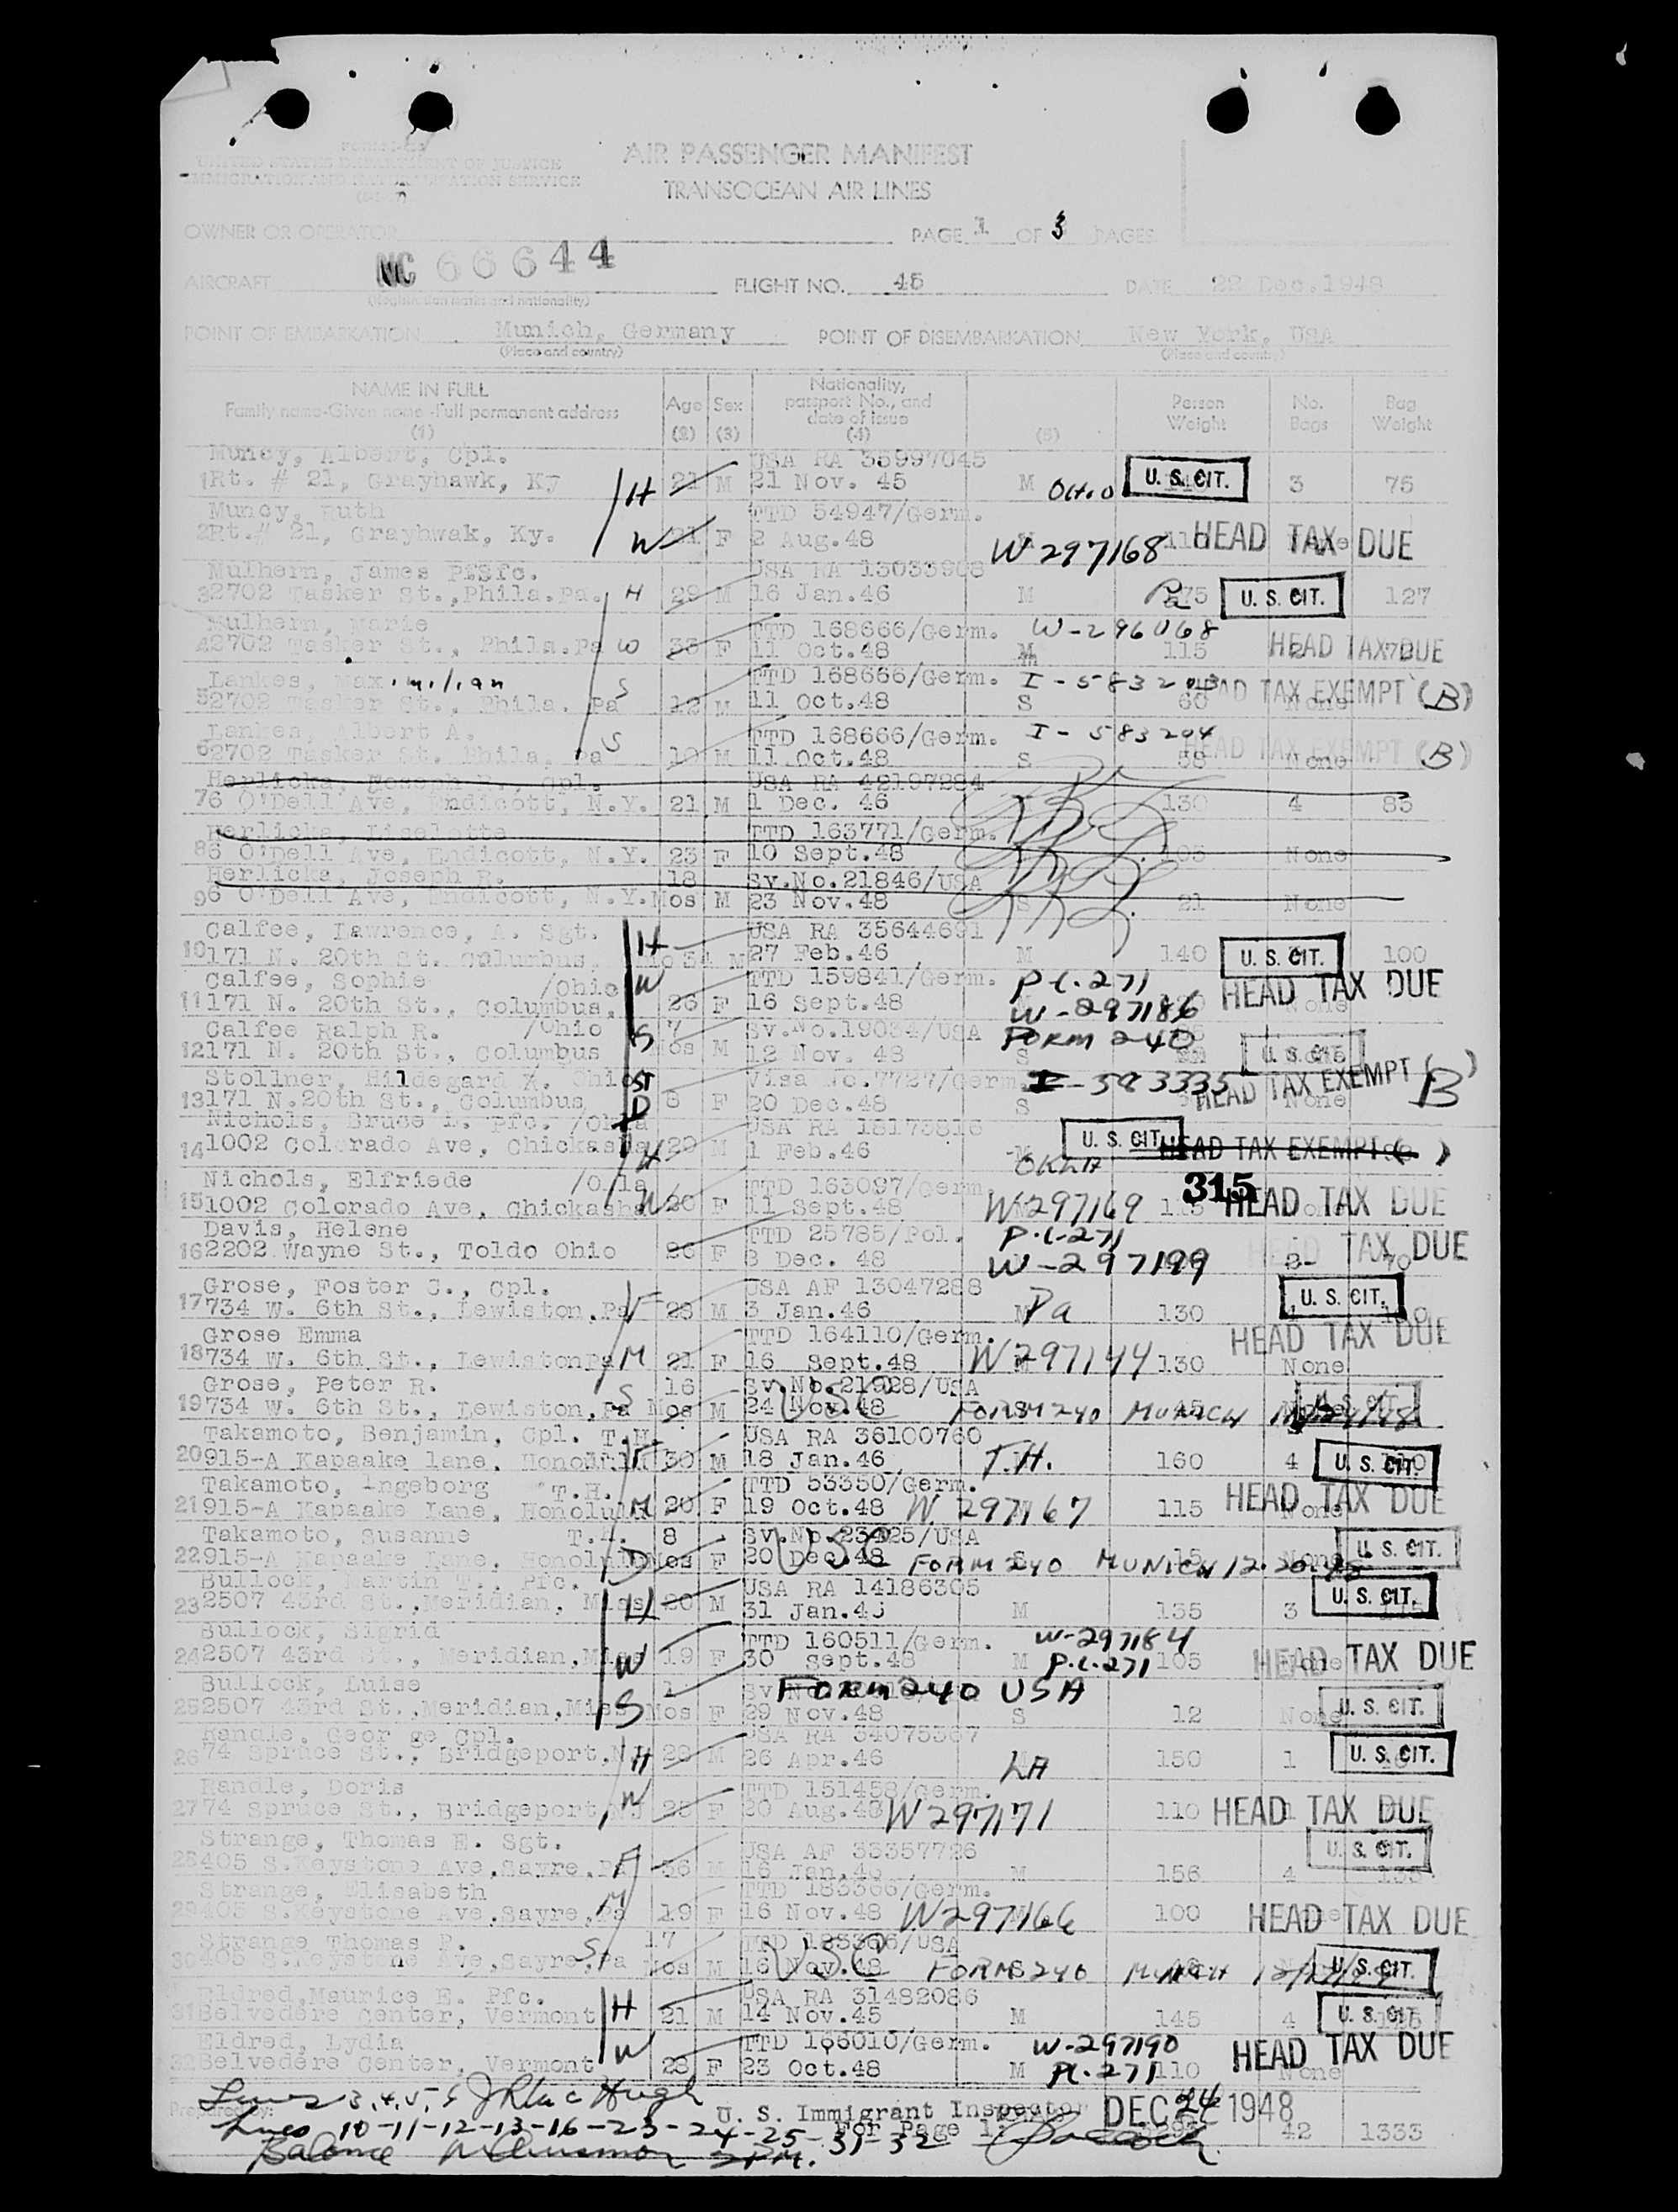 UNITED STATES DEPARTMENT OF JUSTICE
IMMIGRATION AND NATURALIZATION SERVICE
AIR PASSENGER MANIFEST
TRANSOCEAN AIR LINES
OWNER OR OPERATOR
PAGE 1 OF 3 PAGES
AIRCRAFT NC 66644 FLIGHT NO. 45 DATE 22 Dec.1948
(Registration marks and nationality)
POINT OF EMBARKATION Munich, Germany POINT OF DISEMBARKATION New York, USA
(Place and country) (Place and country)
NAME IN FULL
Family name-Given name-Full permanent address
(1)
Age (2)
Sex (3)
Nationality, passport No., and date of issue (4)
(5)
Person Weight
No. Bags
Bag Weight
Muncy, Albert, Cpl. USA RA 35997045
1 Rt. # 21, Grayhawk, Ky H 21 M 21 Nov. 45 M U. S. CIT. 3 75
Muncy, Ruth TTD 54947/Germ.
2 Rt.# 21, Grayhwak, Ky. W 21 F 2 Aug.48 W 297168 HEAD TAX DUE
Mulhern, James Pfc. USA RA 13033908
3 2702 Tasker St.,Phila.Pa. H 29 M 16 Jan.46 M Pa 175 U. S. CIT. 127
Mulhern, Marie TTD 168666/Germ. W-296068
4 2702 Tasker St., Phila.Pa W 33 F 11 Oct.48 M 115 HEAD TAX DUE
Lankes, Maximilian S TTD 168666/Germ. I-583203 HEAD TAX EXEMPT (B)
5 2702 Tasker St., Phila. Pa 12 M 11 Oct.48 S 60 None
Lankes, Albert A. S TTD 168666/Germ. I-583204 HEAD TAX EXEMPT (B)
6 2702 Tasker St. Phila, Pa 10 M 11 Oct.48 S 58 None
Herlicka, Joseph R., Cpl. USA RA 42197284
7 6 O'Dell Ave, Endicott, N.Y. 21 M 1 Dec. 46 130 4 85
Herlicka, Liselotte TTD 163771/Germ.
8 6 O'Dell Ave, Endicott, N.Y. 23 F 10 Sept.48 105 None
Herlicka, Joseph R. 18 Sv.No.21846/USA
9 6 O'Dell Ave, Endicott, N.Y. Mos M 23 Nov.48 S 21 None
Calfee, Lawrence, A. Sgt. H USA RA 35644691
10 171 N. 20th St. Columbus, 34 M 27 Feb.46 M 140 U. S. CIT. 100
Calfee, Sophie /Ohio W TTD 159841/Germ. P.L.271 HEAD TAX DUE
11 171 N. 20th St., Columbus, 26 F 16 Sept.48 W-297186 None
Calfee Ralph R. /Ohio S 7 Sv.No.19034/USA FORM 240
12 171 N. 20th St., Columbus Mos M 12 Nov. 48 S U. S. CIT.
Stollner, Hildegard K. Ohio ST Visa No.7727/Germ. I-583335 HEAD TAX EXEMPT (B)
13 171 N.20th St., Columbus D 8 F 20 Dec.48 S None
Nichols, Bruce L. Pfc. /Okla USA RA 18173816 U. S. CIT.
14 1002 Colorado Ave, Chickasha H 20 M 1 Feb.46 M OKLA HEAD TAX EXEMPT ( )
Nichols, Elfriede /Okla TTD 163087/Germ. 315
15 1002 Colorado Ave, Chickasha W 20 F 11 Sept.48 W 297169 HEAD TAX DUE
Davis, Helene TTD 25785/Pol. P.L-271 HEAD TAX DUE
16 2202 Wayne St., Toldo Ohio 26 F 8 Dec. 48 W-297199 70
Grose, Foster C., Cpl. USA AF 13047288
17 734 W. 6th St., Lewiston,Pa F 28 M 3 Jan.46 M Pa 130 U. S. CIT.
Grose Emma TTD 164110/Germ. HEAD TAX DUE
18 734 W. 6th St., Lewiston Pa M 21 F 16 Sept.48 W297144 130 None
Grose, Peter R. S 16 Sv.No.21928/USA USC U. S. CIT.
19 734 W. 6th St., Lewiston,Pa Mos M 24 Nov.48 FORM 240 MUNICH
Takamoto, Benjamin, Cpl. T.H. USA RA 36100760
20 915-A Kapaake lane, Honolulu F 30 M 18 Jan.46 T.H. 160 4 U. S. CIT.
Takamoto, Ingeborg T.H. TTD 53350/Germ. HEAD TAX DUE
21 915-A Kapaake Lane, Honolulu M 20 F 19 Oct.48 W. 297167 115 None
Takamoto, Susanne T.H. 8 Sv.No.23425/USA USC U. S. CIT.
22 915-A Kapaake Lane, Honolulu D Mos F 20 Dec.48 FORM 240 MUNICH 12-20-48
Bullock, Martin T., Pfc. USA RA 14186305
23 2507 43rd St.,Meridian, Miss H 20 M 31 Jan.46 M 135 3 U. S. CIT.
Bullock, Sigrid TTD 160511/Germ. W-297184
24 2507 43rd St., Meridian,Miss W 19 F 30 Sept.48 M P.L.271 105 HEAD TAX DUE
Bullock, Luise 1 FORM 240 USA
25 2507 43rd St.,Meridian,Miss S Mos F 29 Nov.48 S 12 None U. S. CIT.
Randle, George Cpl. USA RA 34075367
26 74 Spruce St., Bridgeport,N.J H 28 M 26 Apr.46 LA 150 1 U. S. CIT.
Randle, Doris W TTD 151458/Germ.
27 74 Spruce St., Bridgeport,NJ 25 F 20 Aug.48 W297171 110 HEAD TAX DUE
Strange, Thomas E. Sgt. USA AF 33357726 U. S. CIT.
28 405 S.Keystone Ave,Sayre,Pa F 36 M 16 Jan.46 M 156 4
Strange, Elisabeth TTD 183366/Germ.
29 405 S.Keystone Ave,Sayre,Pa M 19 F 16 Nov.48 W297166 100 HEAD TAX DUE
Strange Thomas P. S 17 TTD 183366/USA USC
30 405 S.Keystone Ave,Sayre,Pa Mos M 16 Nov.48 FORM 240 MUNICH U. S. CIT.
Eldred,Maurice E. Pfc. USA RA 31482086
31 Belvedere Center, Vermont H 21 M 14 Nov.45 M 145 4 U. S. CIT.
Eldred, Lydia TTD 166010/Germ. W-297190 HEAD TAX DUE
32 Belvedere Center, Vermont W 28 F 23 Oct.48 M PL.271 110 None
Lines 3,4,5,6
Prepared by: U. S. Immigrant Inspector DEC 24 1948
Lines 10-11-12-13-16-23-24-25-31-32 For Page 1: 42 1333
Balance